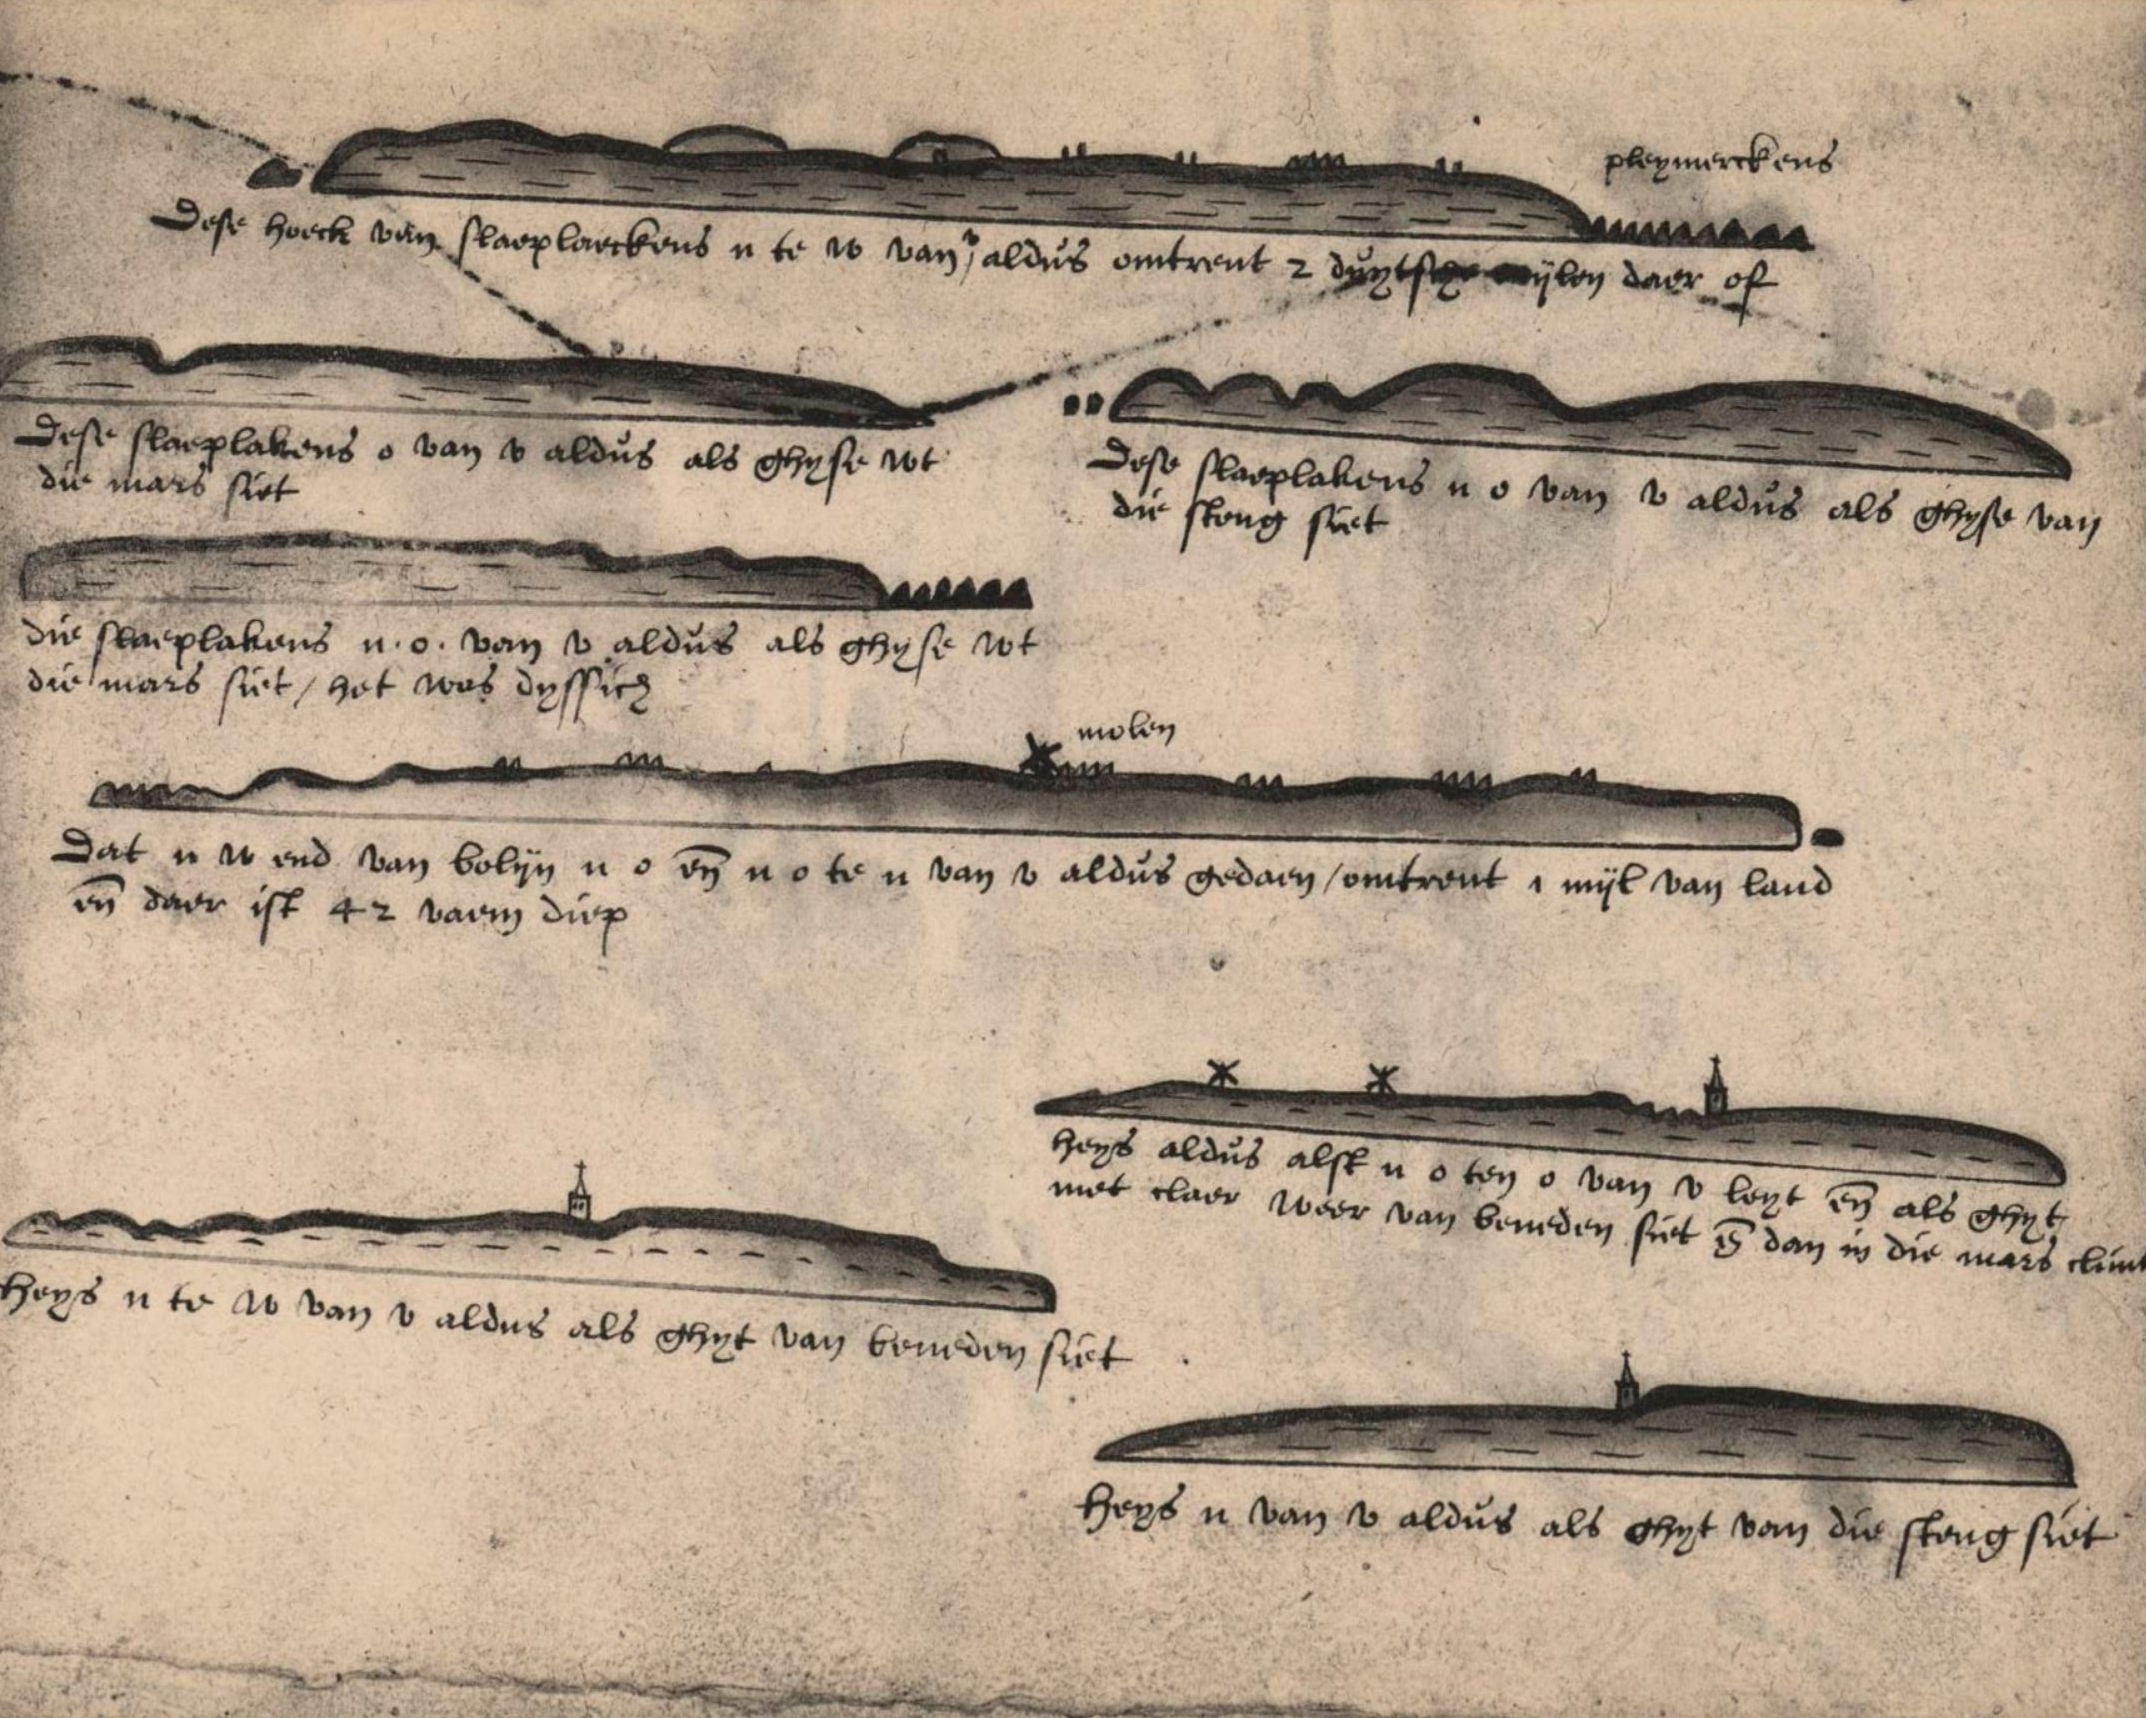 pleymerckens
Dese hoeck van slaeplaeckens n te w van v aldus omtrent 2 duytsche mijlen daer of
Dese slaeplakens o van v aldus als ghyse wt
die mars siet
Dese slaeplakens n o van v aldus als ghyse van
die steng siet
die slaeplakens n. o. van v aldus als ghyse wt
die mars siet / het was dyssich
molen
Dat n w end van bolijn n o eñ n o te n van v aldus gedaen / omtrent 1 mijl van land
eñ daer ist 42 vaem diep
heys aldus alst n o ten o van v leyt eñ als ghyt
met claer weer van beneden siet eñ dan in die mars climt
heys n te w van v aldus als ghyt van beneden siet
heys n van v aldus als ghyt van die steng siet